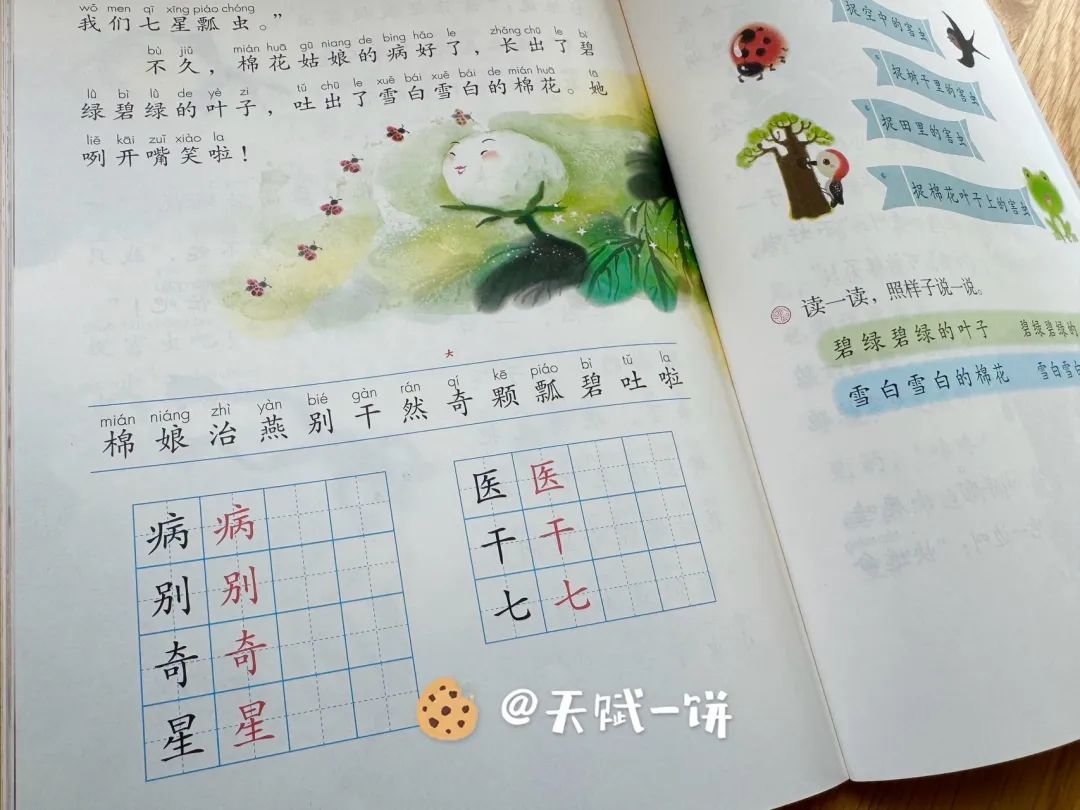 wǒ men qī xīng piáo chóng
我们七星瓢虫。”
bù jiǔ, mián huā gū niang de bìng hǎo le zhǎng chū le bì
不久,棉花姑娘的病好了,长出了碧
lǜ bì lǜ de yè zi tǔ chū le xuě bái xuě bái de mián huā tā
绿碧绿的叶子,吐出了雪白雪白的棉花。她
liě kāi zuǐ xiào la
咧开嘴笑啦!
mián niáng zhì yàn bié gàn rán qí kē piáo bì tǔ la
棉 娘 治 燕 别 干 然 奇 颗 瓢 碧 吐 啦
病 病
别 别
奇 奇
星 星
医 医
干 干
七 七
捉空中的害虫
捉树干里的害虫
捉田里的害虫
捉棉花叶子上的害虫
读一读,照样子说一说。
碧绿碧绿的叶子 碧绿碧绿的
雪白雪白的棉花 雪白雪白
@天赋一饼